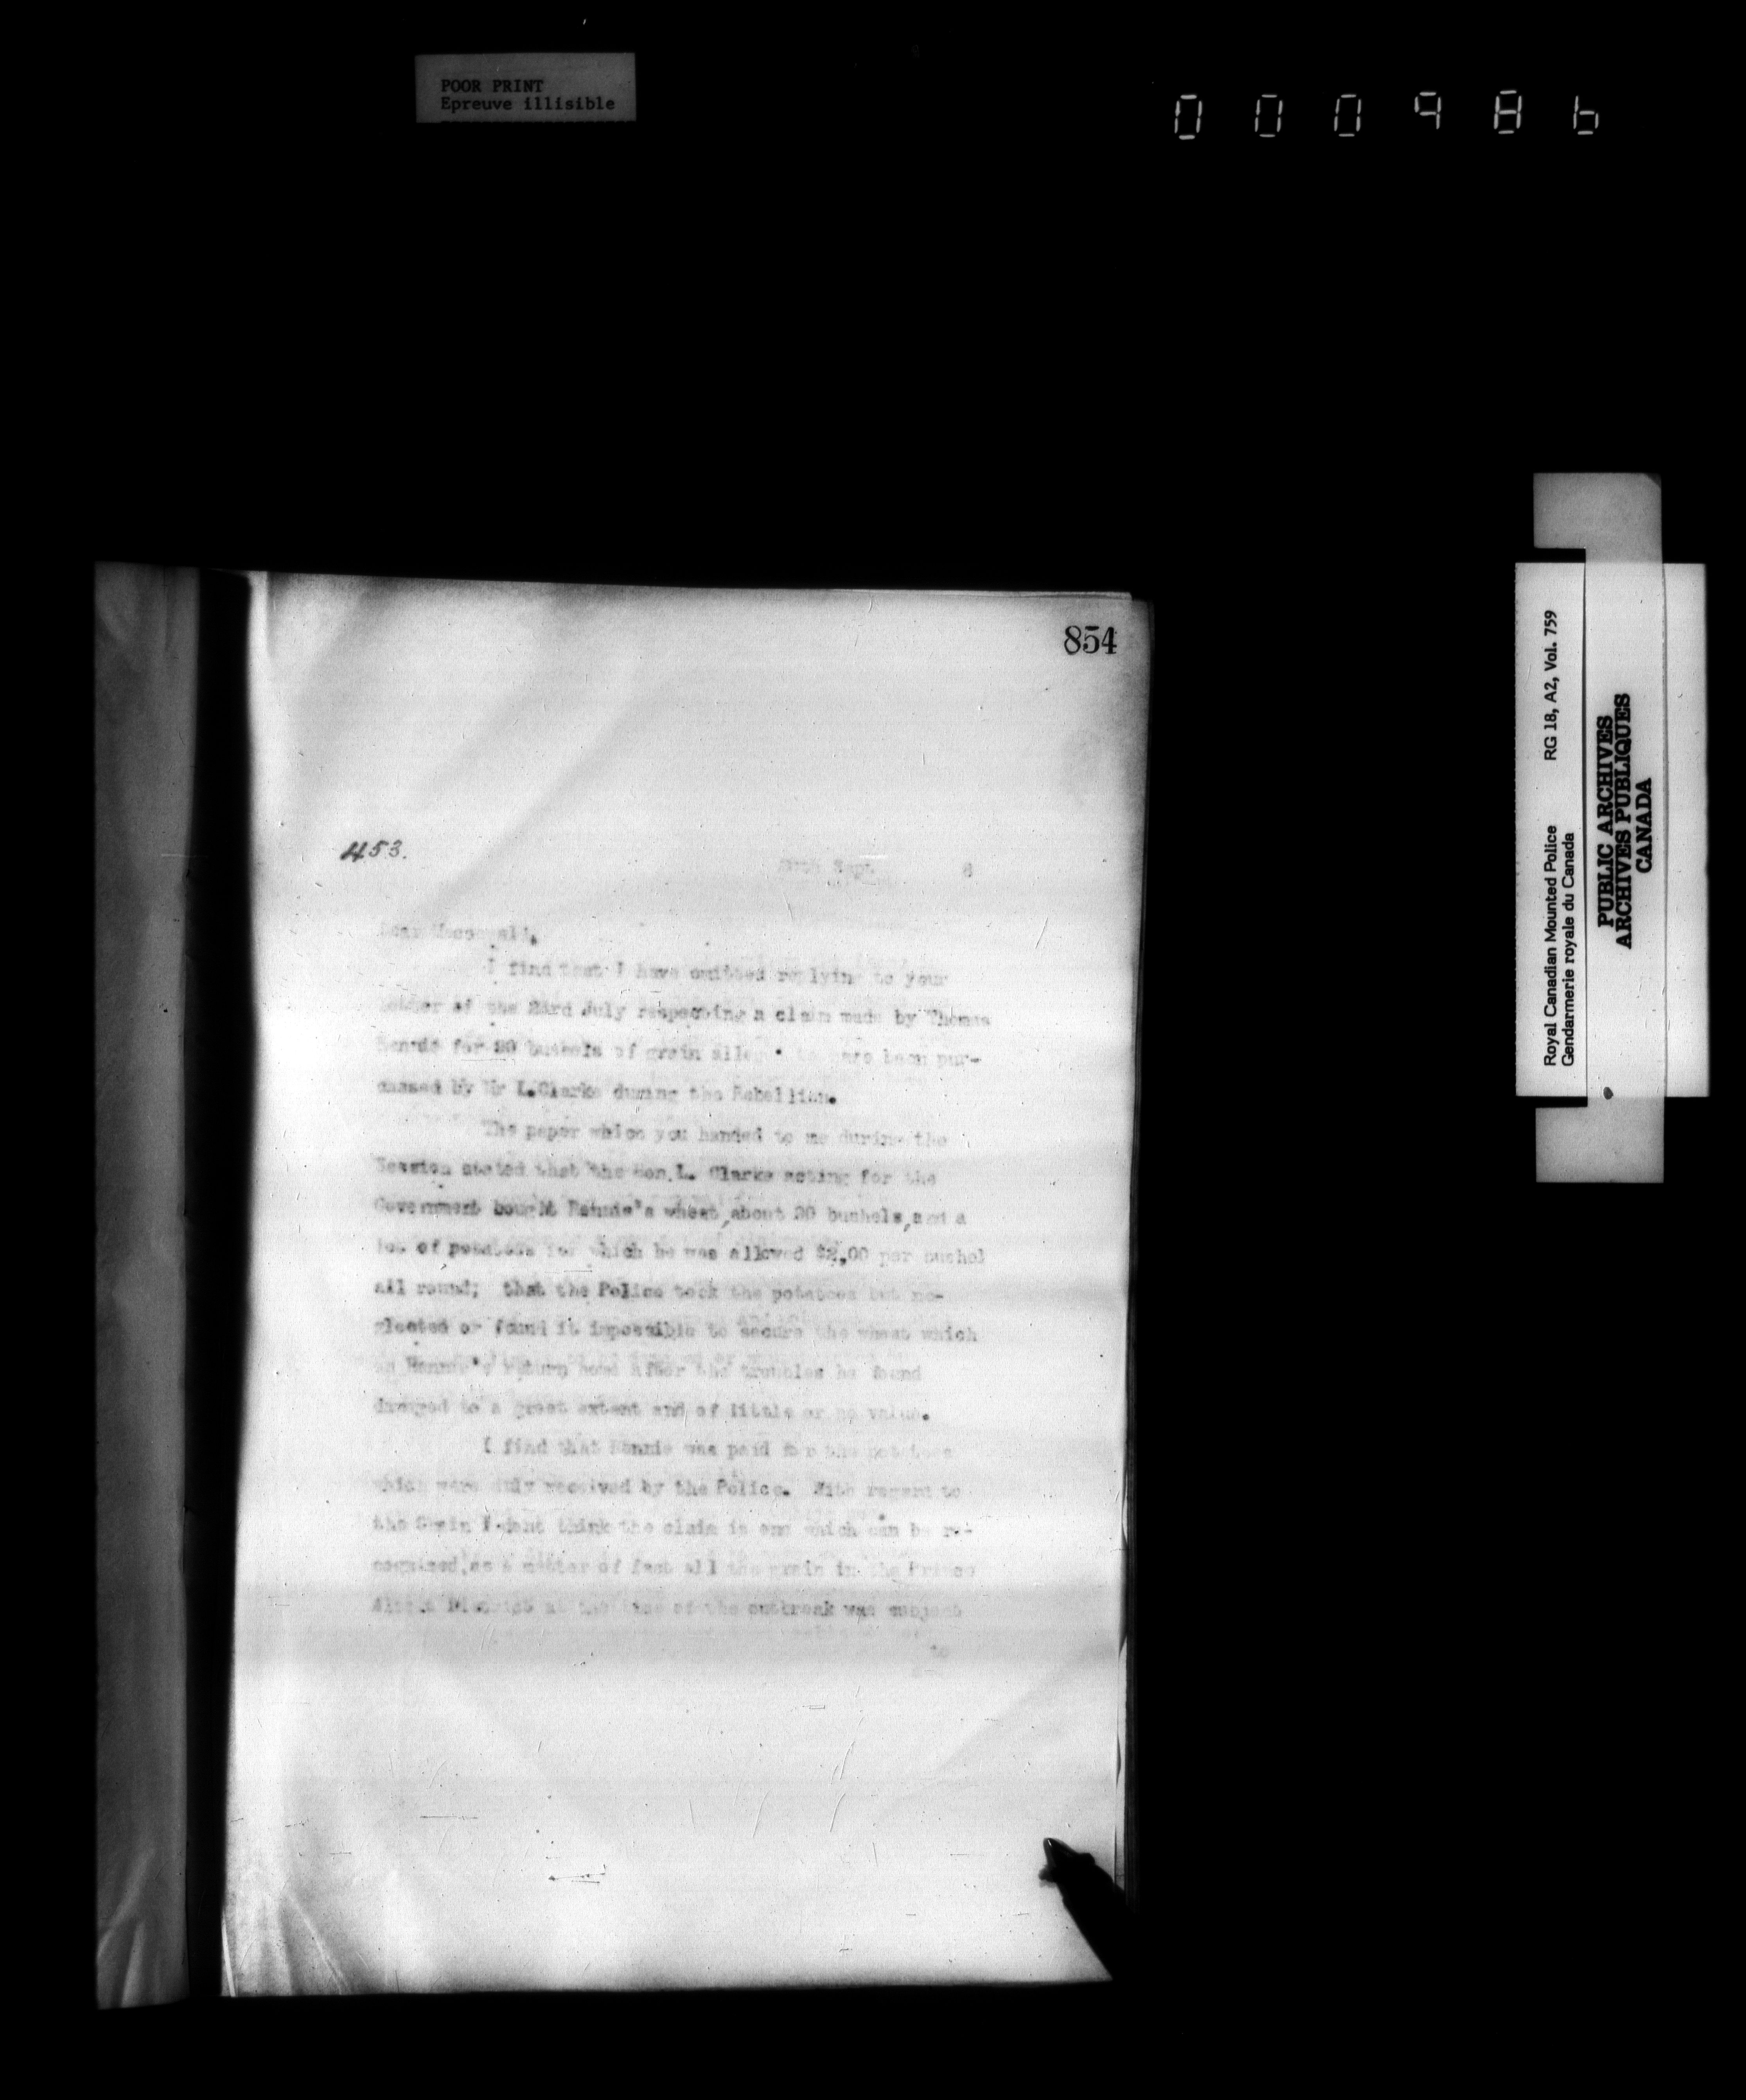 POOR PRINT
Epreuve illisible
000986
854
453.
Sept. 6
Dear Macdowald,
I find that I have omitted replying to your
letter of the 23rd July respecting a claim made by Thomas
for 20 bushels of grain have been pur-
chased by Mr L.Clarke during the Rebellion.
The paper which you handed to me during the
Session stated that the Hon.L. Clarke acting for the
Government bought Rennie's wheat,about 20 bushels,and a
lot of potatoes for which he was allowed $2,00 per bushel
all round; that the Police took the potatoes but ne-
glected or found it impossible to secure the wheat which
on Rennie's return home after the troubles he found
damaged to a great extent and of little or no value.
I find that Rennie was paid for the potatoes
which were duly received by the Police. With regard to
the Grain I dont think the claim is one which can be re-
cognized,as a matter of fact all the grain in the Prince
Albert District at the time of the outbreak was subject
to
Royal Canadian Mounted Police RG 18, A2, Vol. 759
Gendarmerie royale du Canada
PUBLIC ARCHIVES
ARCHIVES PUBLIQUES
CANADA